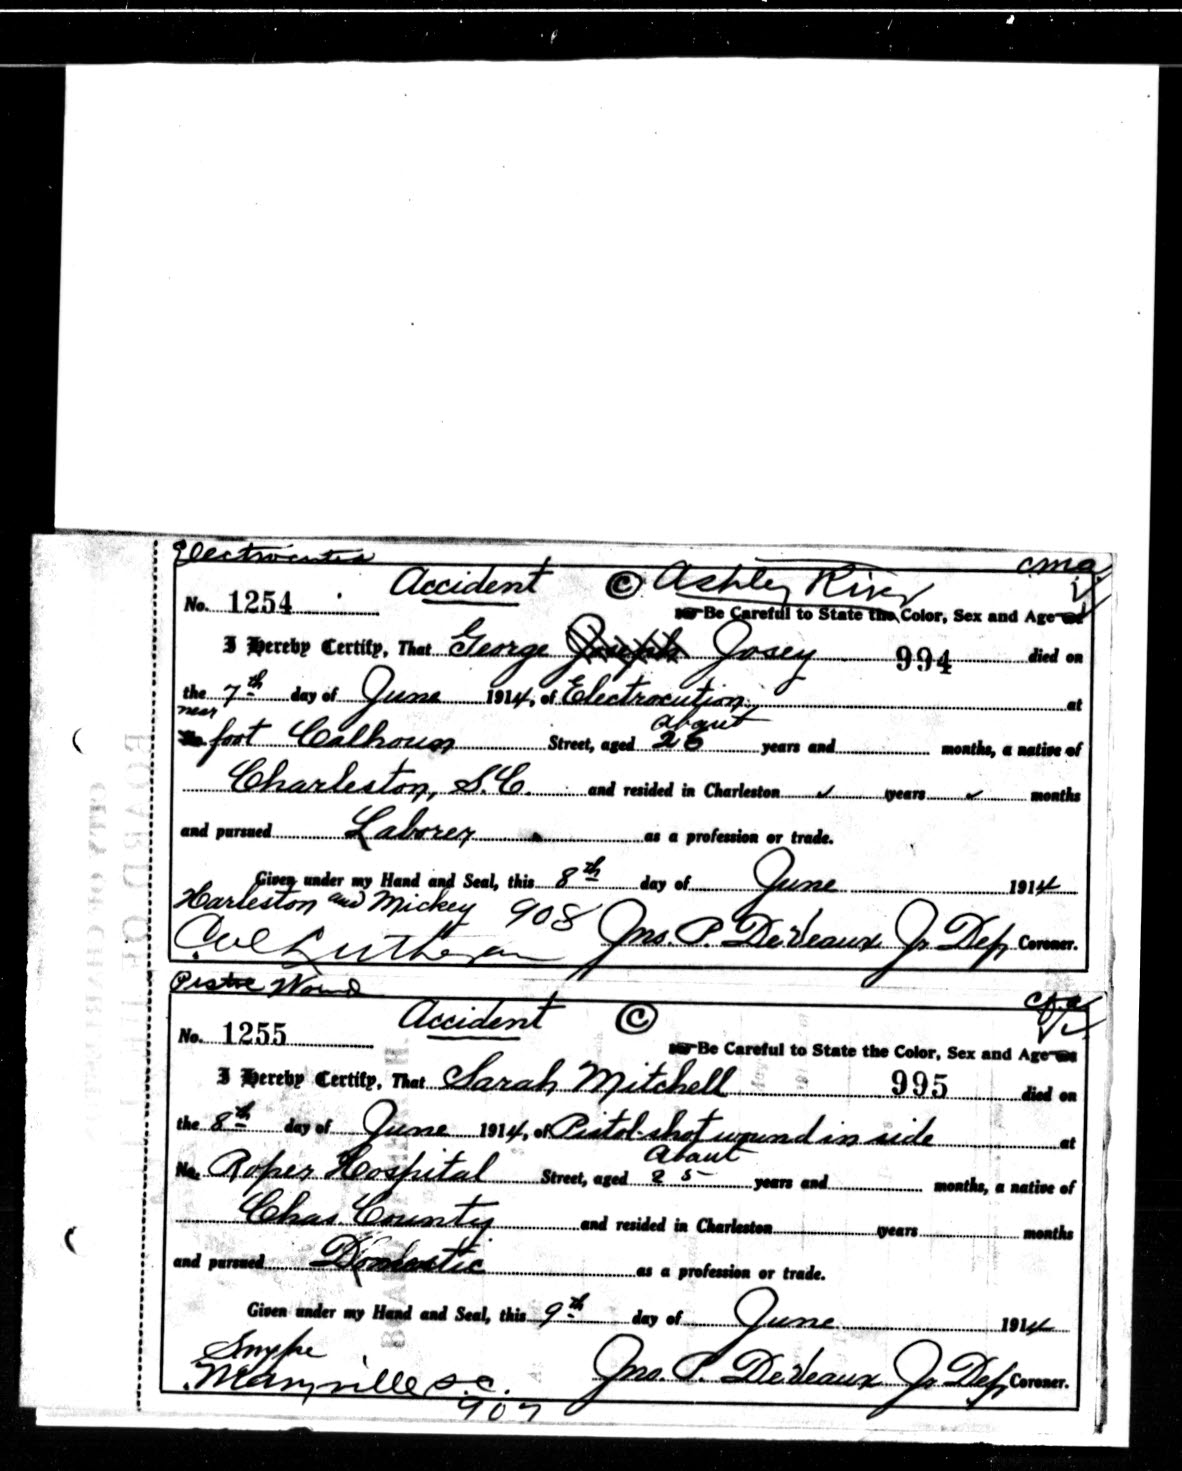 Electrocuted
Accident © Ashley River c.m.a.
No. 1254
Be Careful to State the Color, Sex and Age
I Hereby Certify, That George Joseph Josey 994 died on
the 7th day of June 1914, of Electrocution at
near
foot Calhoun Street, aged About 26 years and months, a native of
Charleston, S.C. and resided in Charleston ✓ years ✓ months
and pursued Laborer as a profession or trade.
Given under my Hand and Seal, this 8th day of June 1914
Harleston and Mickey 908
Col Lutheran Jno. P. DeVeaux Jr Dep Coroner.
Pistol Wound
Accident ©
No. 1255
Be Careful to State the Color, Sex and Age
I Hereby Certify, That Sarah Mitchell 995 died on
the 8th day of June 1914, of Pistol-shot wound in side at
No. Roper Hospital Street, aged About 25 years and months, a native of
Chas. County and resided in Charleston years months
and pursued Domestic as a profession or trade.
Given under my Hand and Seal, this 9th day of June 1914
Smyke
Maryville S.C. Jno. P. DeVeaux Jr Dep Coroner.
907